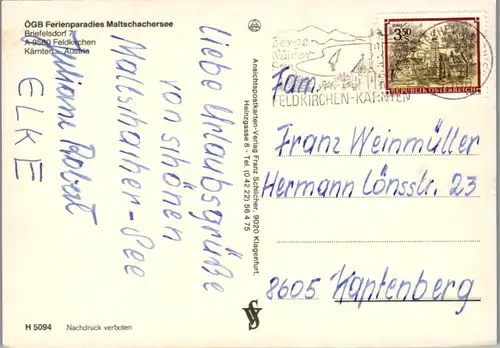 ÖGB Ferienparadies Maltschachersee
Briefelsdorf 7
A-9560 Feldkirchen
Kärnten - Austria
Liebe Urlaubsgrüße
von schönen
Maltschacher-See
Juliane Robert
ELKE
H 5094 Nachdruck verboten
Ansichtspostkarten-Verlag Franz Schilcher, 9020 Klagenfurt,
Heinzgasse 8 - Tel. (0 42 22) 56 4 75
Berge
Wälder
Seen
FELDKIRCHEN-KÄRNTEN
3.50
REPUBLIK ÖSTERREICH
Fam.
Franz Weinmüller
Hermann Lönsstr. 23
8605 Kapfenberg